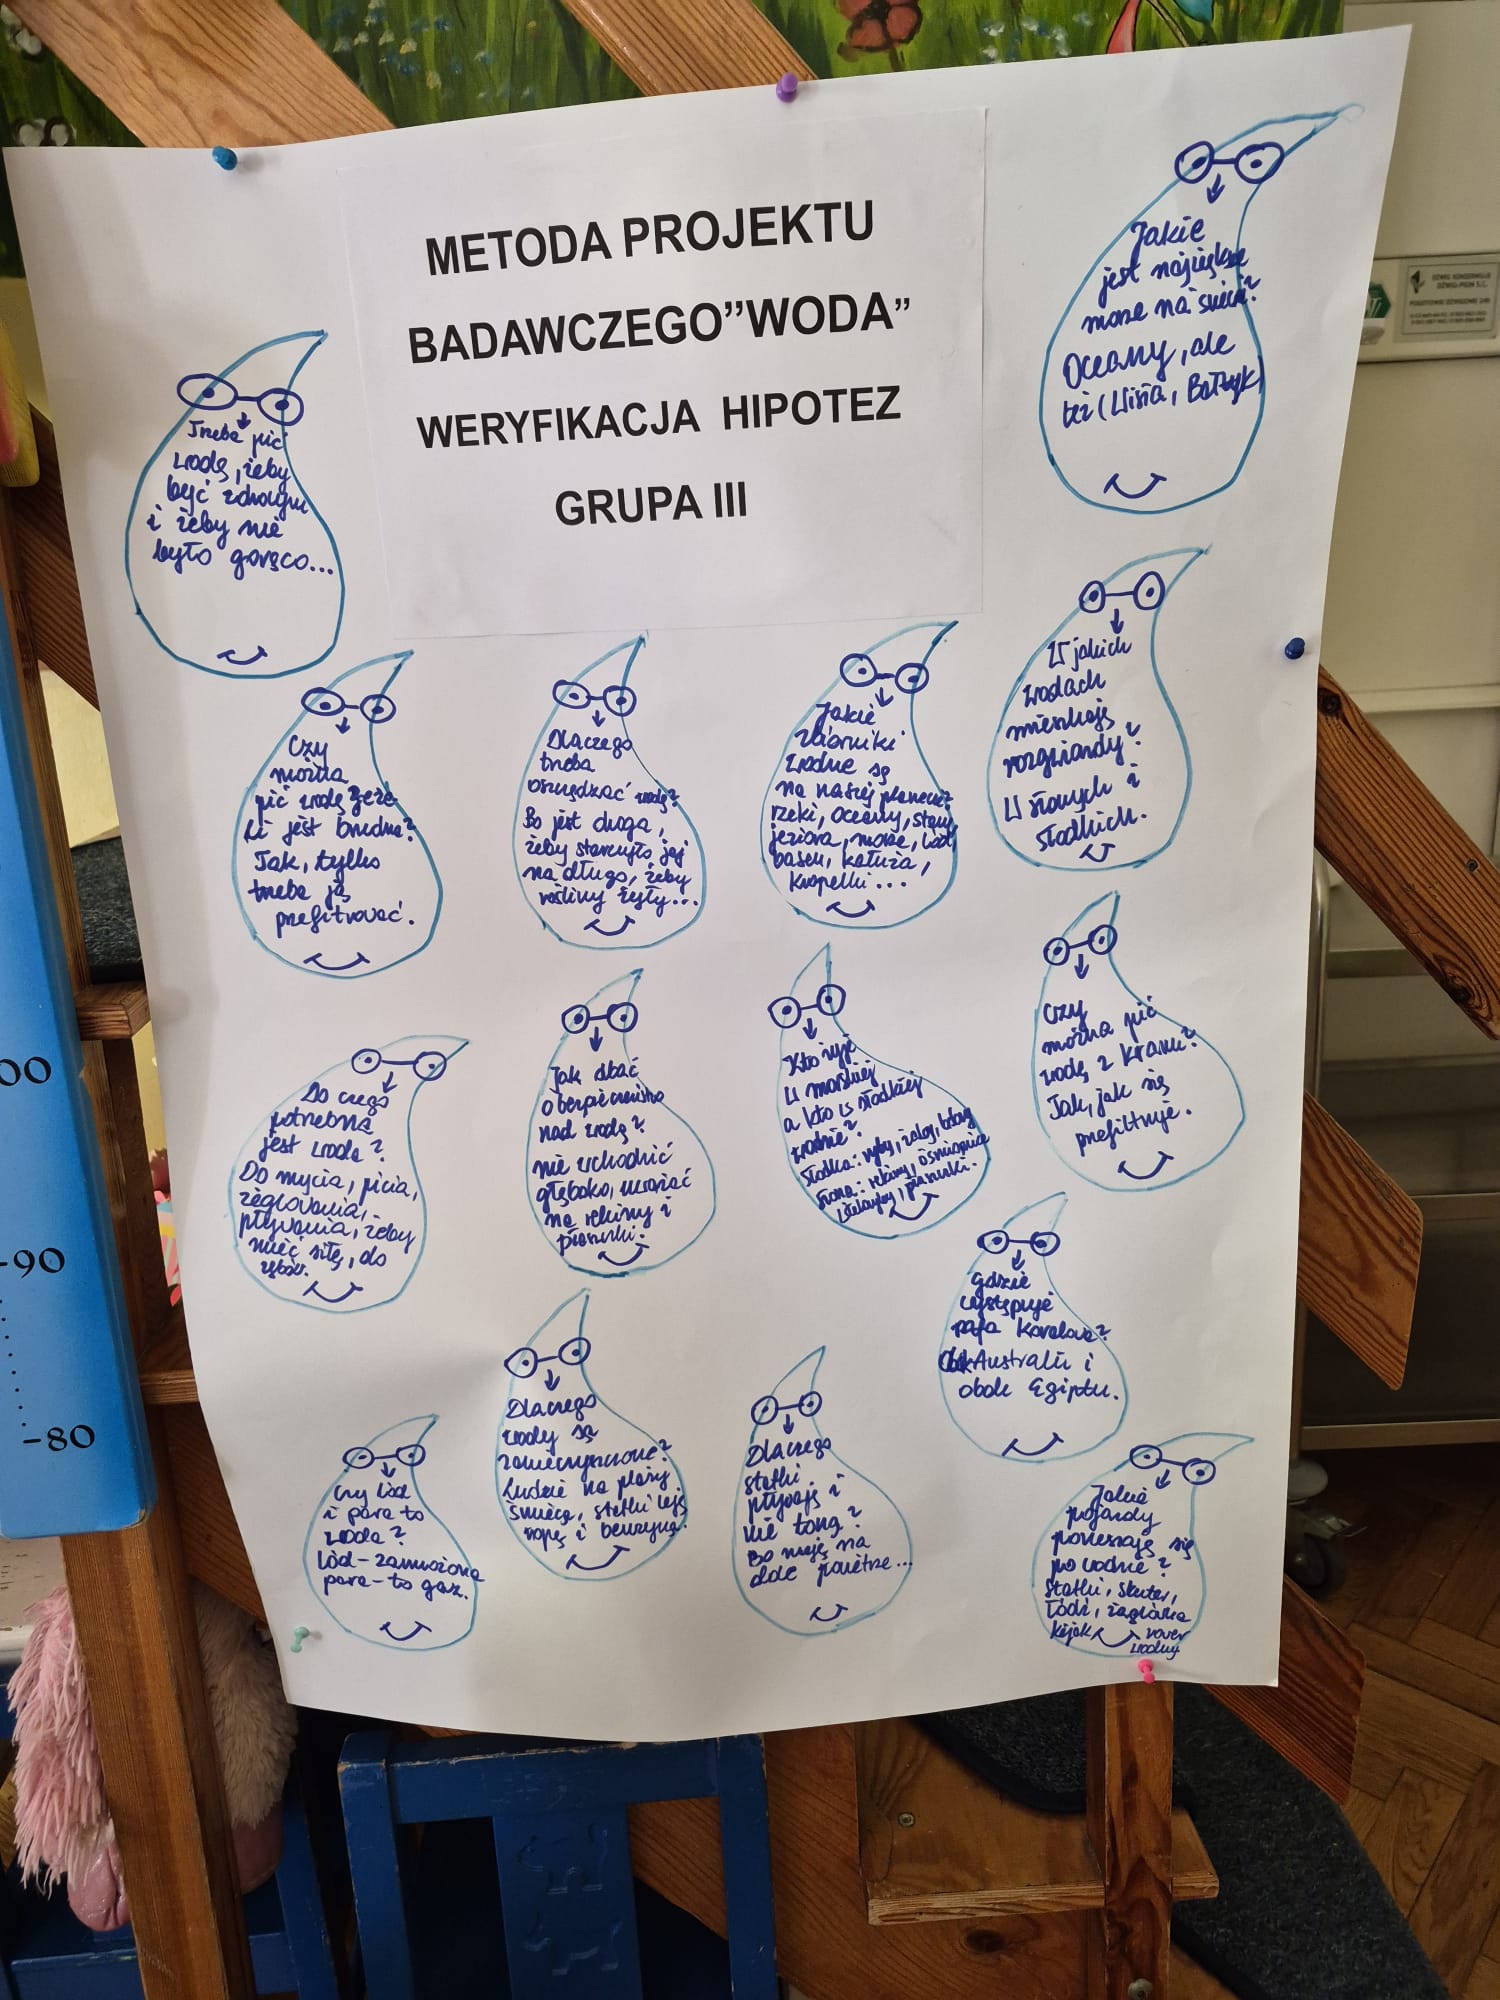 METODA PROJEKTU
BADAWCZEGO"WODA"
WERYFIKACJA HIPOTEZ
GRUPA III
Jakie
jest największe
morze na świecie?
Oceany, ale
też (Wisła, Bałtyk)
Trzeba pić
wodę, żeby
być zdrowym
i żeby nie
było gorąco...
Czy
można
pić wodę jeże
li jest brudna?
Tak, tylko
trzeba ją
przefitrować.
Dlaczego
trzeba
oszczędzać wodę?
Bo jest droga,
żeby starczyło jej
na długo, żeby
rośliny żyły...
Jakie
zbiorniki
wodne są
na naszej planecie?
rzeki, oceany, stawy,
jeziora, morze, lód,
basen, kałuża,
kropelki...
W jakich
wodach
mieszkają
rozgwiazdy?
W słonych i
słodkich.
Do czego
potrzebna
jest woda?
Do mycia, picia,
żeglowania,
pływania, żeby
mieć siłę, do
rybów.
Jak dbać
o bezpieczeństwo
nad wodą?
nie wchodzić
głęboko, uważać
na rekiny i
piranki.
Kto żyje
w morskiej
a kto w słodkiej
wodzie?
Słodka: ryby, żaby,
Słona: rekiny, ośmiornice
Czy
można pić
wodę z kranu?
Tak, jak się
przefiltruje.
Gdzie
występuje
rafa koralowa?
Obok Australii i
obok Egiptu.
Czy lód
i para to
woda?
Lód - zamrożona
para - to gaz.
Dlaczego
wody są
zanieczyszczone?
Ludzie na plaży
śmiecą, statki leją
ropę i benzynę.
Dlaczego
statki
pływają i
nie toną?
Bo mają na
dole powietrze...
Jakie
pojazdy
poruszają się
po wodzie?
Statki, skuter,
łódź, żaglówka
kajak rower
wodny
00
-90
-80
DŹWIG-PION S.C.